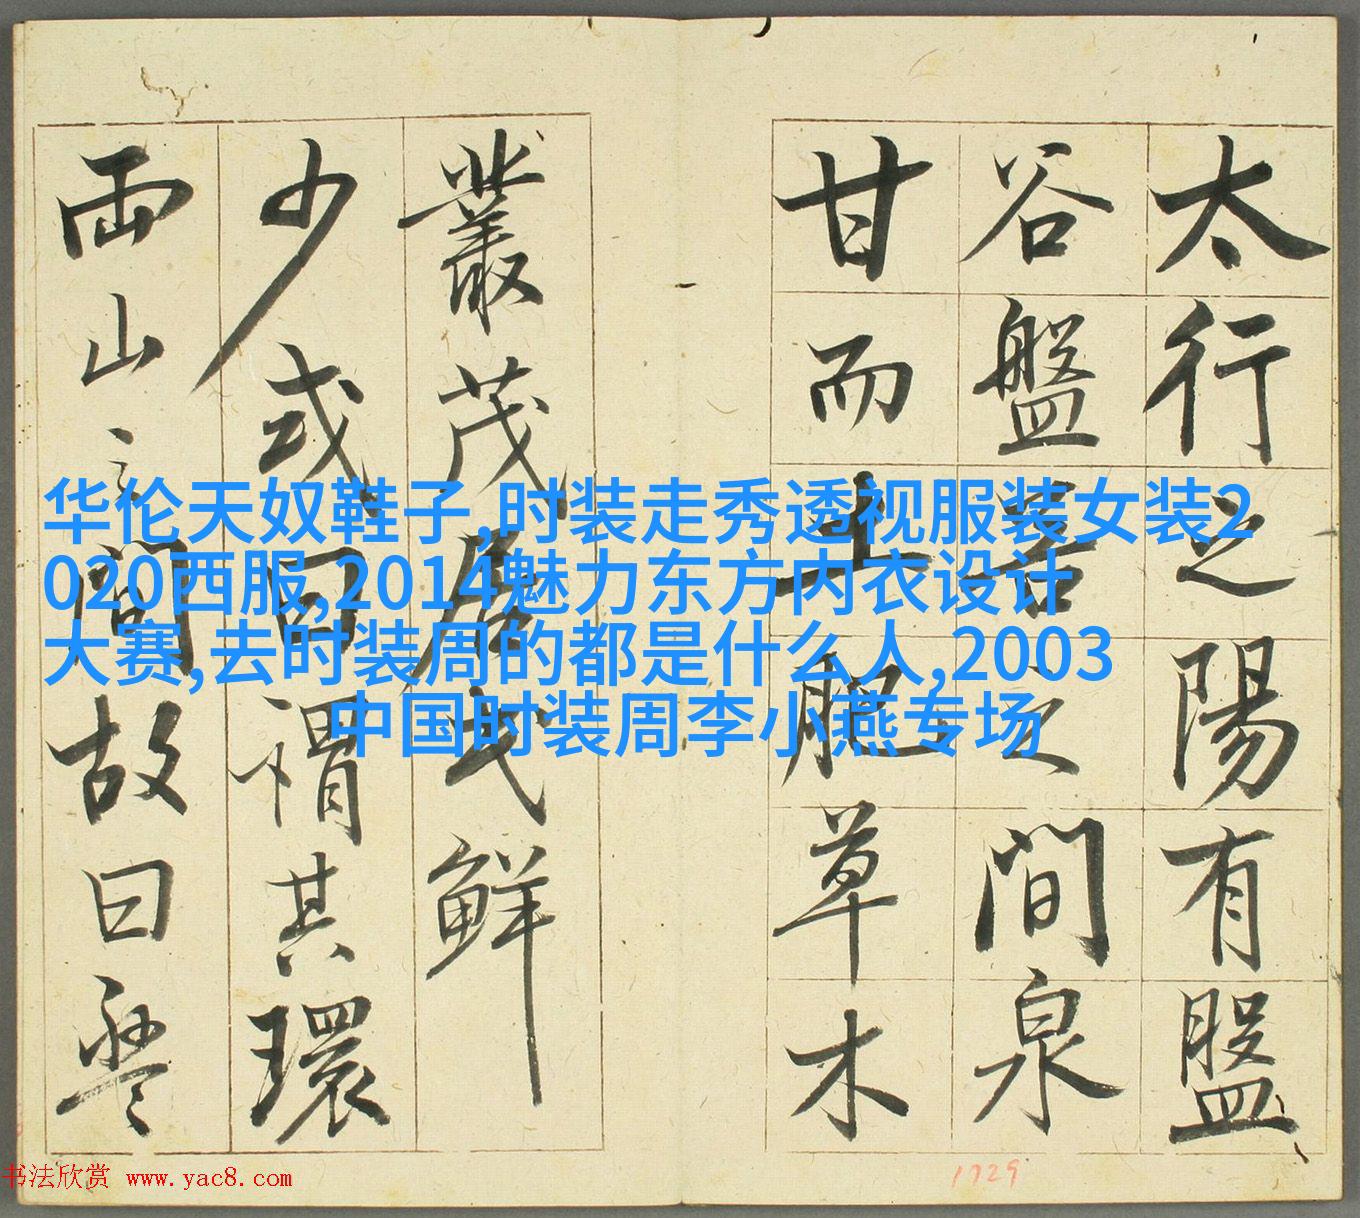 太行之陽有盤
谷盤谷之間泉
甘而土肥草木
叢茂居民鮮
少或曰謂其環
兩山之間故曰盤
华伦天奴鞋子,时装走秀透视服装女装2
020西服,2014魅力东方内衣设计
大赛,去时装周的都是什么人,2003
中国时装周李小燕专场
书法欣赏 www.yac8.com
1729